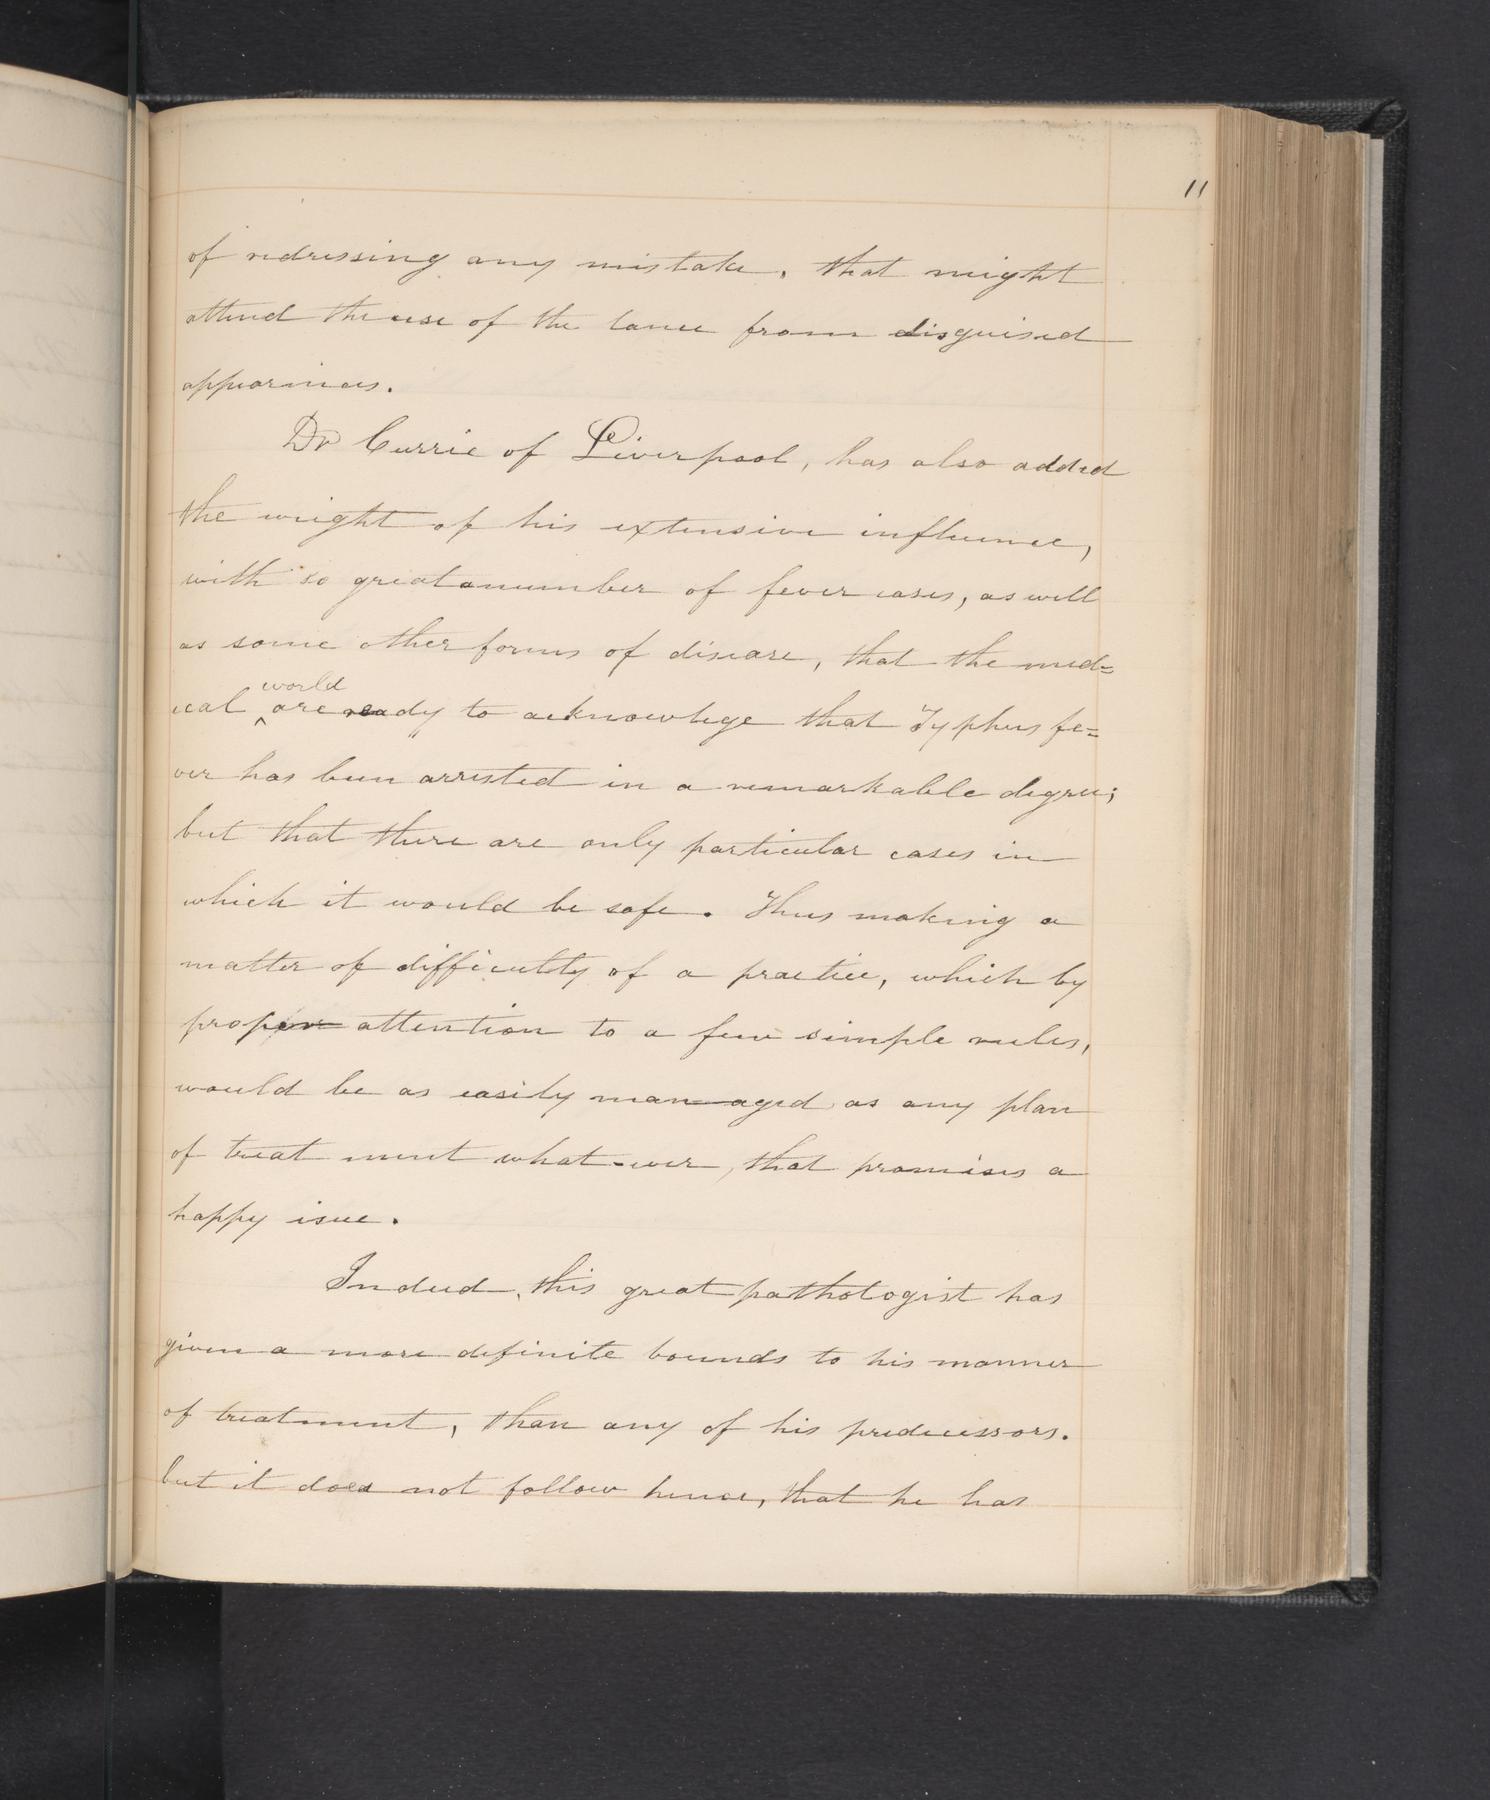 11
of redressing any mistake, that might
attend the use of the lance from disguised
appearinces.
Dr Currie of Liverpool, has also added
the weight of his extensive influence,
with so great a number of fever cases, as well
as some other forms of disease, that the med=
ical ^world are ready to acknowlege that Typhus fe=
ver has been arrested in a remarkable degree;
but that there are only particular cases in
which it would be safe. Thus making a
matter of difficultly of a practice, which by
proper attention to a few simple rules,
would be as easily managed as any plan
of treat ment what-ever, that promises a
happy isue.
Indeed, this great pathologist has
given a more definite bounds to his manner
of treatment, than any of his predecessors.
but it does not follow hence, that he has